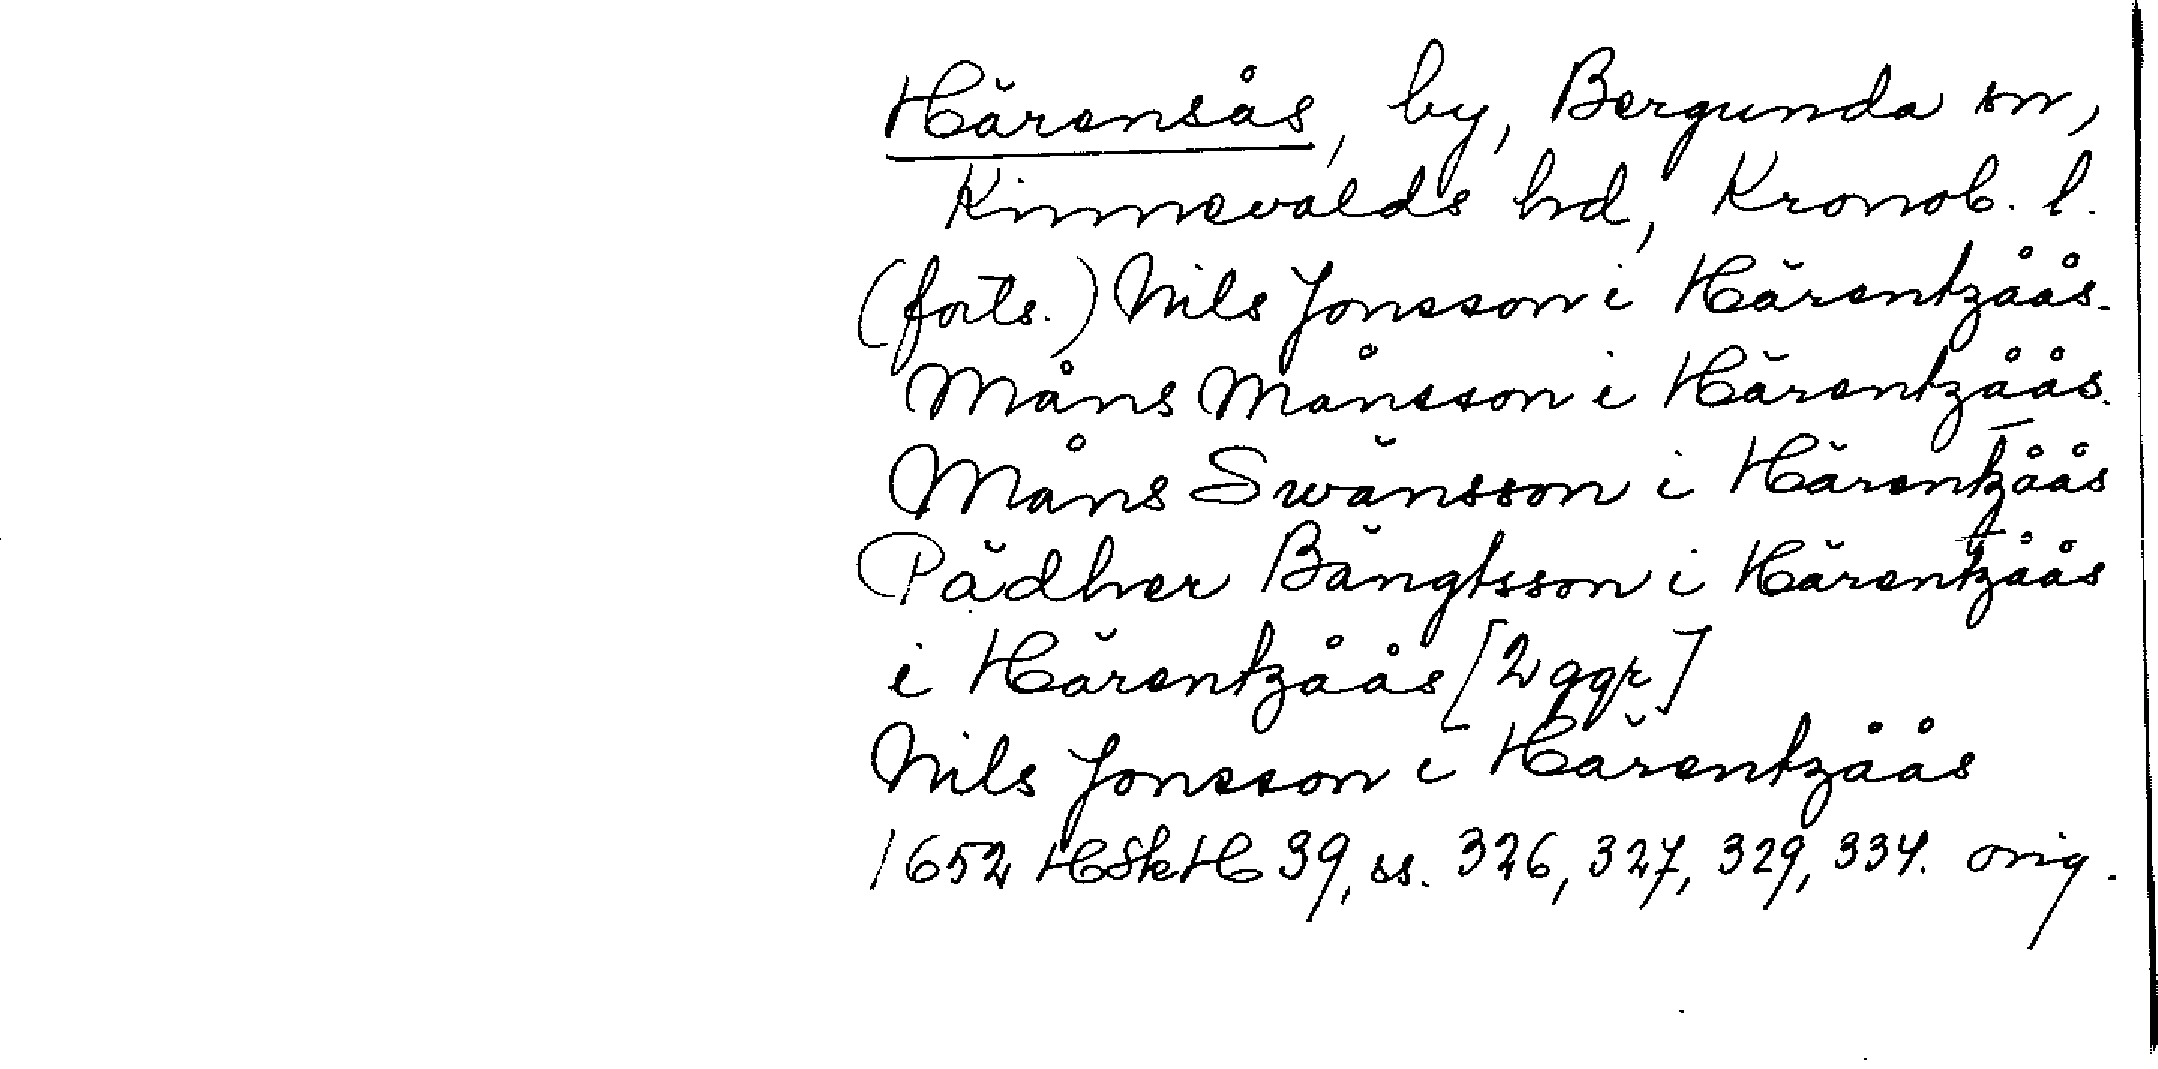 Härensås, by, Bergunda sn,
Kinnevalds hd, Kronob. l.
(forts.) Nils Jonsson i Härentzåås.
Måns Månsson i Härentzåås.
Måns Swänsson i Härentzåås
Pädher Bängtsson i Härentzåås
i Härentzåås [2 ggr]
Nils Jonsson i Härentzåås
1652 HSkH 39, ss. 326, 327, 329, 334. orig.